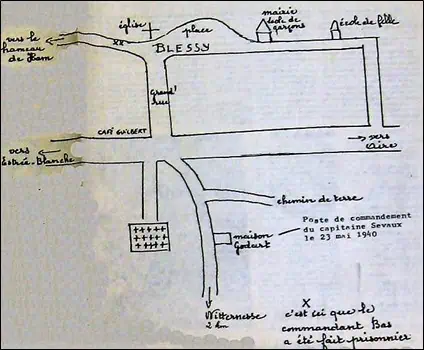 vers le
hameau
de Ham
église
place
BLESSY
mairie
école de
garçons
école de fille
xx
Grand'
rue
CAFÉ GUILBERT
vers
Estrée-Blanche
vers
Aire
chemin de terre
maison
Godart
Poste de commandement
du capitaine Sevaux
le 23 mai 1940
Witternesse
2 km
X
c'est ici que le
commandant Bas
a été fait prisonnier